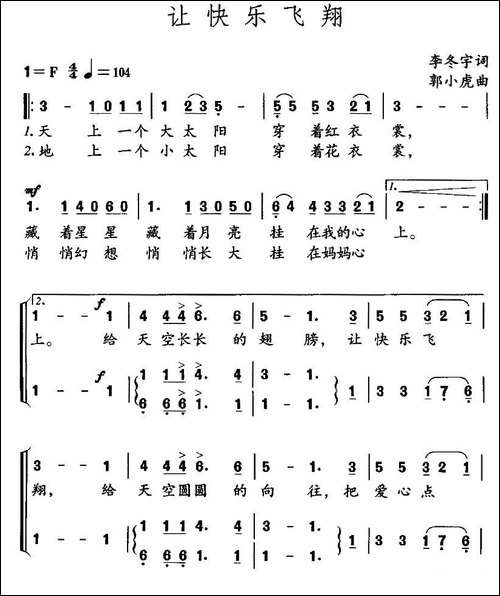 让快乐飞翔
1=F 4/4 ♩=104
李冬字词
郭小虎曲
3 - 1 0 1 1 | 1 2 3 5 - | 5 5 5 3 2 1 | 3 - - |
1.天 上 一个 大 太 阳 穿 着红 衣 裳,
2.地 上 一个 小 太 阳 穿 着花 衣 裳,
mf
1. 1 4 0 6 0 | 1. 1 3 0 5 0 | 6 4 4 3 3 2 1 | 2 - - :|
1.
藏 着星 星 藏 着月 亮 挂 在我的心 上。
悄 悄幻 想 悄 悄长 大 挂 在妈妈心
2.
f
1 - - 1 | 4 4 4 6. 6 | 5 - 1. 3 | 5 5 3 2 1 |
上。 给 天 空长长 的 翅 膀, 让 快 乐 飞
f
1 - - 1 | 1 1 1 4. 4 | 3 - 1. 1 | 3 3 1 7 6 |
6 6 6 1. 1 | 1 - 1.
3 - - 1 | 4 4 4 6. 6 | 5 - 1. 3 | 5 5 3 2 1 |
翔, 给 天 空圆圆 的 向 往, 把 爱 心 点
1 - - 1 | 1 1 1 4. 4 | 3 - 1. 1 | 3 3 1 7 6 |
6 6 6 1. 1 | 1 - 1.